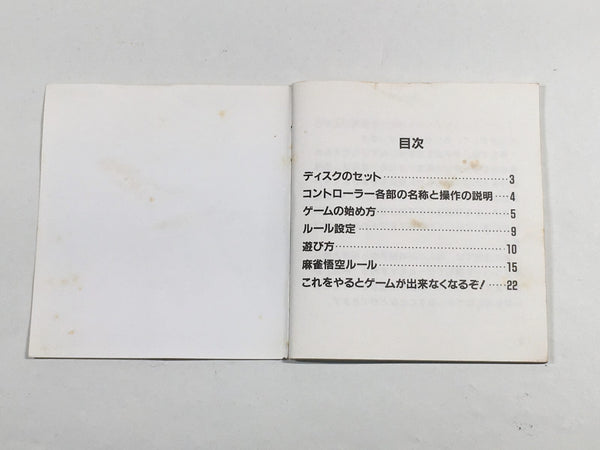 目次
ディスクのセット……………………3
コントローラー各部の名称と操作の説明…4
ゲームの始め方……………………5
ルール設定……………………9
遊び方……………………10
麻雀悟空ルール……………………15
これをやるとゲームが出来なくなるぞ!……22